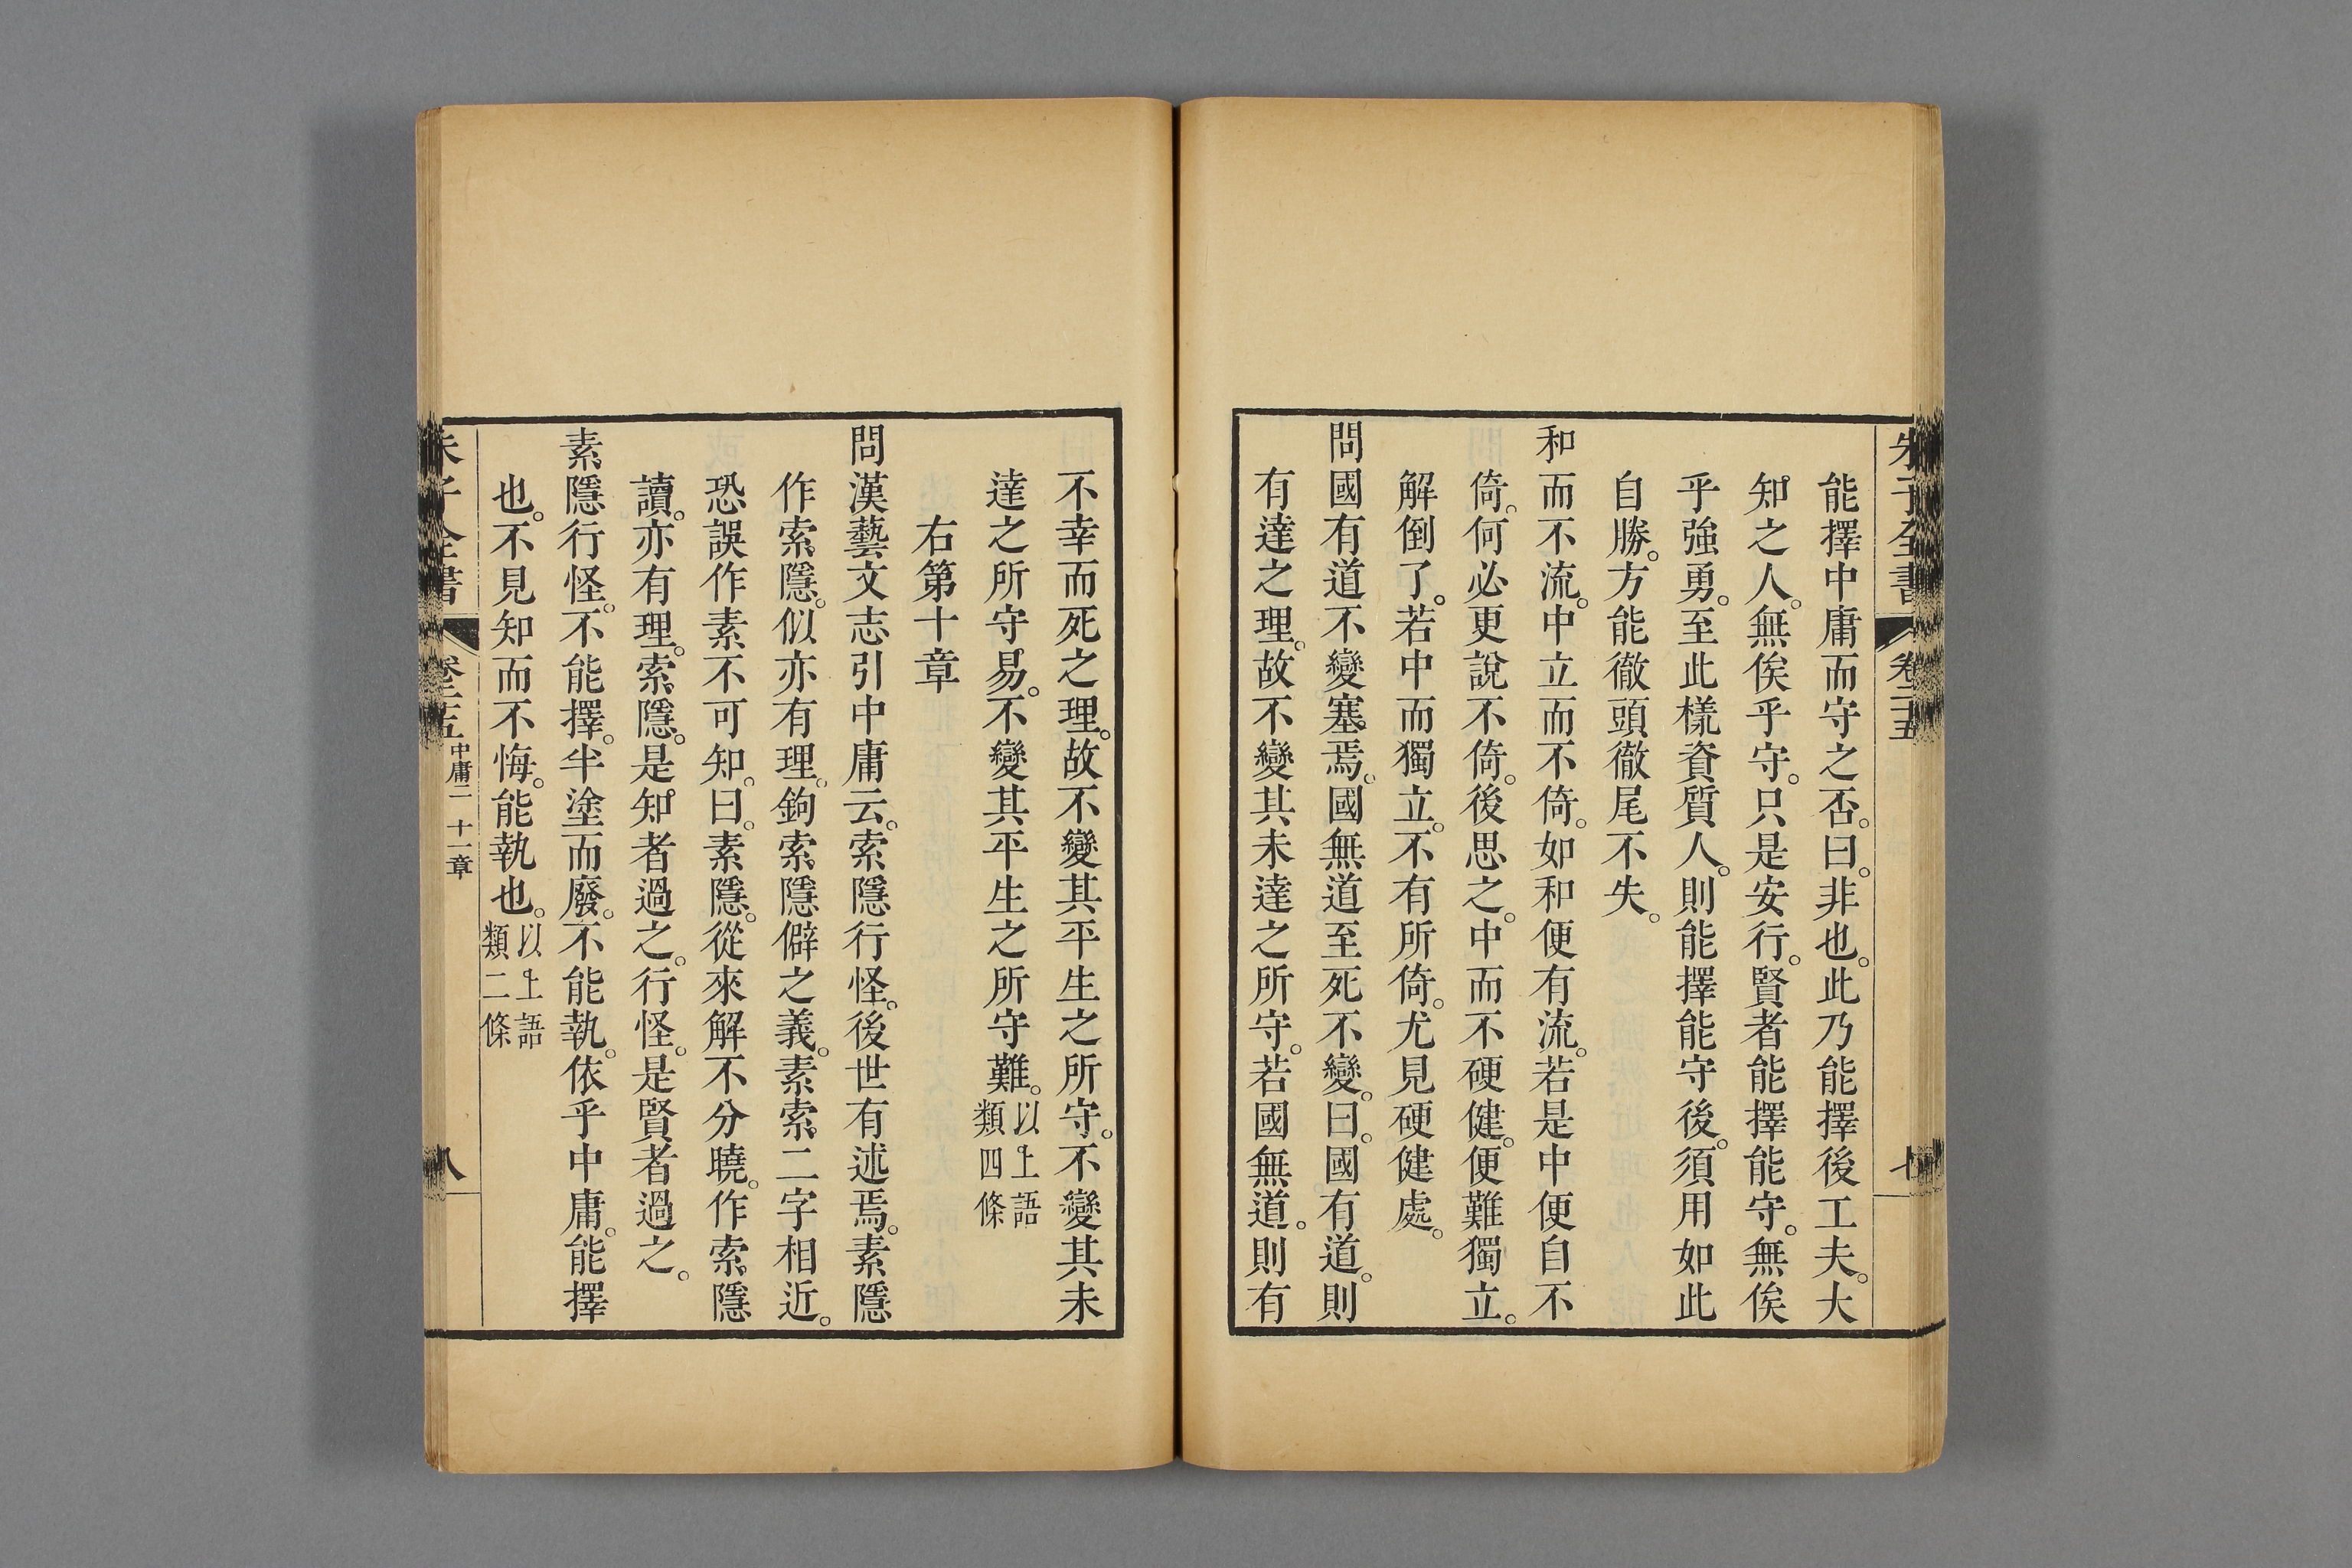 朱子全書 卷二十五 七
能擇中庸而守之否。曰。非也。此乃能擇後工夫。大
知之人。無俟乎守。只是安行。賢者能擇能守。無俟
乎強勇。至此樣資質人。則能擇能守後。須用如此
自勝。方能徹頭徹尾不失。
和而不流。中立而不倚。如和便有流。若是中便自不
倚。何必更說不倚。後思之。中而不硬健。便難獨立。
解倒了。若中而獨立。不有所倚。尤見硬健處。
問國有道不變塞焉。國無道至死不變。曰。國有道。則
有達之理。故不變其未達之所守。若國無道。則有
不幸而死之理。故不變其平生之所守。不變其未
達之所守易。不變其平生之所守難。以上語類四條
右第十章
問漢藝文志引中庸云。索隱行怪。後世有述焉。素隱
作索隱。似亦有理。鉤索隱僻之義。素索二字相近。
恐誤作素不可知。曰。素隱。從來解不分曉。作索隱
讀。亦有理。索隱。是知者過之。行怪。是賢者過之。
素隱行怪。不能擇。半塗而廢。不能執。依乎中庸。能擇
也。不見知而不悔。能執也。以上語類二條
朱子全書 卷二十五 中庸二 十一章 八